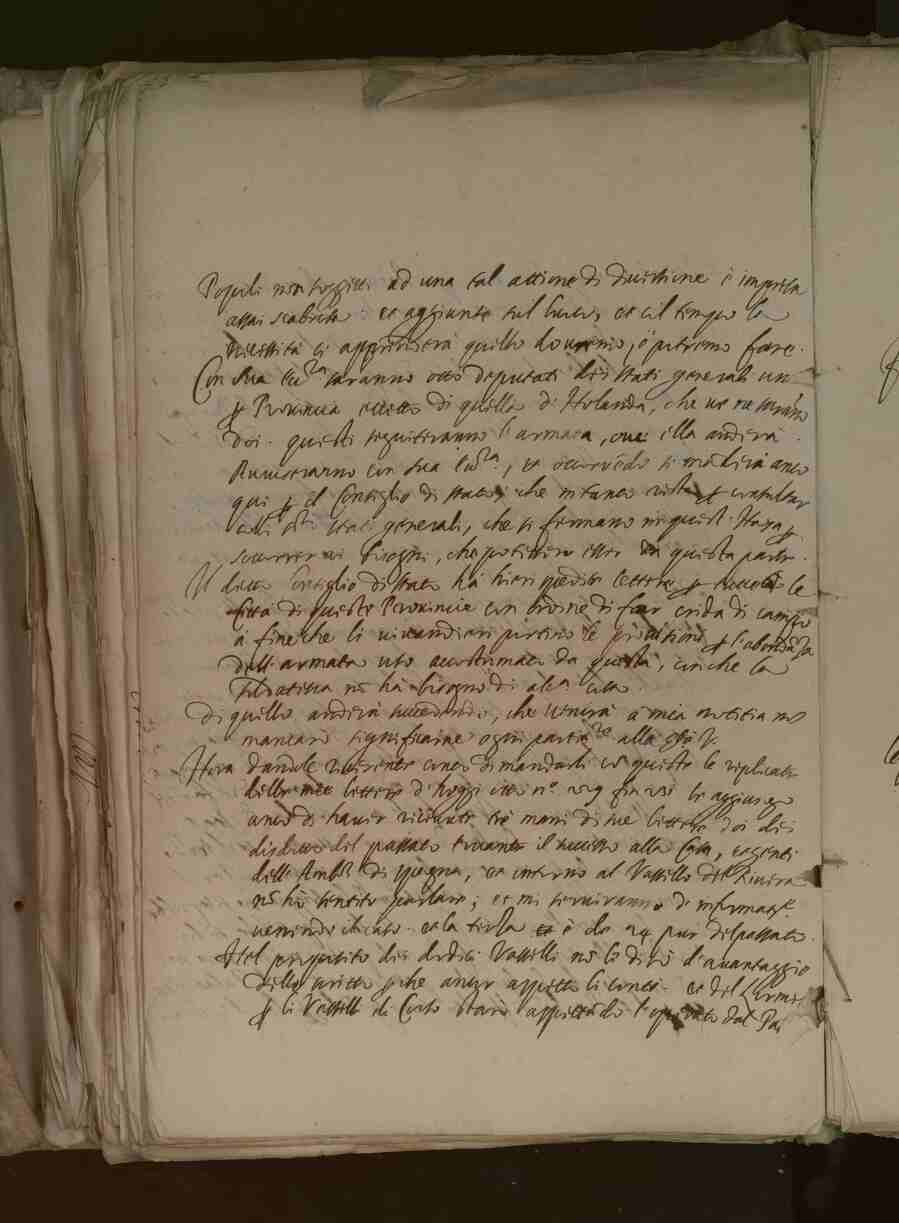 Popoli non soggetti ad una tal attione di diversione è impresa
assai scabrosa: et aggiunto sul luoco, et il tempo la
necessità ci apprenderà quello dovremo, ò potremo fare.
Con sua Ecc.za saranno otto deputati dei stati generali un
per Provincia eccetto di quella di Holanda, che ve ne saranno
doi. questi seguiteranno l'armata, ove ella anderà
con sua Ecc.za, et occorrendo si manderà anco
qui per il Consiglio di stato, che intanto resta per consultar
colli detti stati generali, che si fermano in quest'Haya per
soccorrer ai bisogni, che potessero esser da questa parte.
Il detto Consiglio di stato hà hieri spedite lettere per tutte le
città di queste Provincie con ordine di far crida di campo
à fine che li vivandieri portino le provisioni per l'abondanza
dell'armata uso accostumato da questa, sinche la
soldatesca non hà bisogno di alcuna cosa.
Di quello anderà succedendo, che venirà à mia notitia non
mancarò significarne ogni particolare alla Ser.tà V.
Hora dandole riverente conto di mandarli con queste le replicate
delle mie lettere d'hoggi otto n.o 229 fin 231 le aggiungo
anco di haver ricevute tre mani di sue lettere doi dei
disdotto del passato toccante il successo alla Casa, et genti
dell'Amb.r di spagna, et intorno al Vassello del Rivera
non hò sentito parlare; et mi serviranno d'informatione
venendo il caso. et la terza è de 24 pur del passato.
Nel proposito dei dodici Vasselli non le dirò d'avantaggio
dello scritto perche ancor aspetto li conti. et del
per li Vasselli di Corso starò aspettando l'operato dal Pa